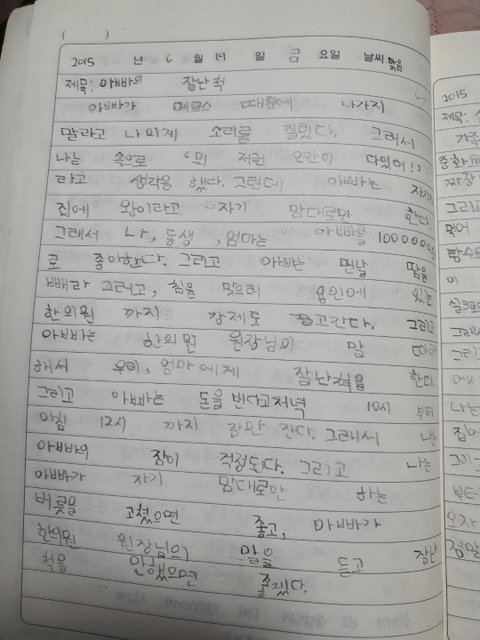 ( )
2015 년 6 월 19 일 금 요일 날씨 맑음
제목: 아빠의 장난척
아빠가 메르스 때문에 나가지
말라고 나의게 소리를 질렀다. 그래서
나는 속으로 '뭐 저런 인간이 다있어!'
라고 생각을 했다. 그런데 아빠는 자기가
집에 왕이라고 자기 맘대로만 한다
그래서 나, 동생, 엄마는 아빠를 1000000
로 좋아한다. 그리고 아빠는 맨날 땀을
빼라 그러고, 침을 맞으러 용인에 있는
한의원 까지 강제로 끌고간다. 그리고
아빠는 한의원 원장님의 말 따라
해서 우리, 엄마에게 잠난척을 한다.
그리고 아빠는 돈을 번다고 저녁 10시 부터
아침 12시 까지 잠만 잔다. 그래서 나는
아빠의 잠이 걱정된다. 그리고 나는
아빠가 자기 맘대로만 하는
버릇을 고쳤으면 좋고, 아빠가
한의원 원장님의 말을 듣고 잘난
척을 안했으면 좋겠다.
2015
제목:
가족
중화
짜장
그리고
먹어
탕수육
이
그래서
그리고
나는
집에
그리고
부터